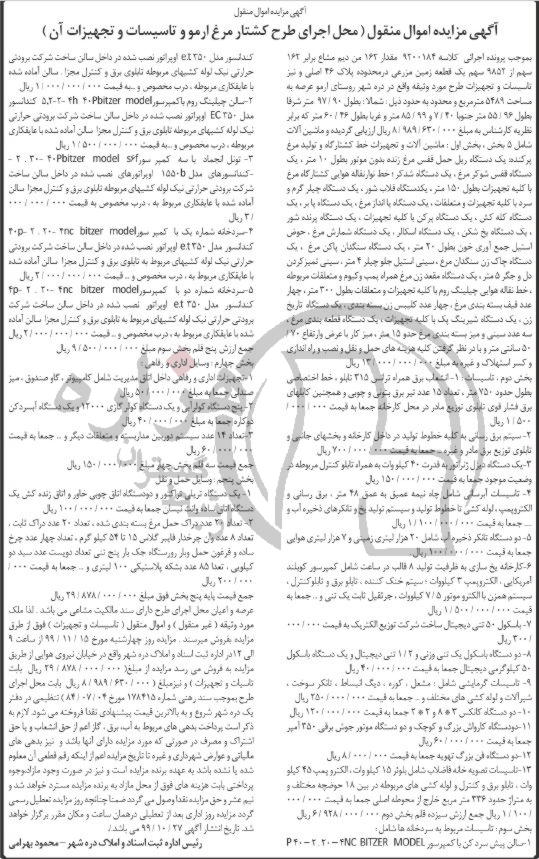 آگهی مزایده اموال منقول
آگهی مزایده اموال منقول ( محل اجرای طرح کشتار مرغ ارمو و تاسیسات و تجهیزات آن )
بموجب پرونده اجرائی کلاسه ۹۲۰۰۱۸۴ مقدار ۱۶۲ من دیم مشاع برابر ۱۶۲
سهم از ۹۸۵۲ سهم یک قطعه زمین مزرعی درمحدوده پلاک ۴۶ اصلی و نیز
تاسیسات و تجهیزات طرح مورد وثیقه واقع در دره شهر روستای ارمو عرصه به
مساحت ۵۴۸۹ مترمربع و محدود به حدود ذیل : شمالا : بطول ۹۰ / ۹۷ متر شرقا
بطول ۹۶ / ۵۵ متر جنوبا ۴۰ / ۷ و ۹۹ / ۸۵ متر و غربا بطول ۴۶ / ۶۰ متر که برابر
نظریه کارشناس به مبلغ ۶۳۰ / ۹۸۹ / ۸ ریال ارزیابی گردیده و ماشین آلات
شامل ۵ بخش ، بخش اول : ماشین آلات و تجهیزات خط کشتارگاه و تولید مرغ
پرکنده: یک دستگاه ریل حمل قفس مرغ زنده بدون موتور بطول ۱۰ متر ، یک
دستگاه قفس شوکر مرغ ، یک دستگاه شدکر ؛ خط نوارنقاله هوایی کشتارگاه مرغ
با کلیه تجهیزات بطول ۱۵۰ متر ، یکدستگاه قلاب شور ، یک دستگاه چیلر گرم و
سرد با کلیه تجهیزات و متعلقات ، یک دستگاه پا انداز مرغ ، یک دستگاه پا بر ، یک
دستگاه کله کش ، یک دستگاه پرکن با کلیه تجهیزات ، یک دستگاه پرنده شور
، یک دستگاه یخ شکن ، یک دستگاه اسکالر ، یک دستگاه شمارش مرغ ، حوض
استیل جمع آوری خون بطول ۲۰ متر ، یک دستگاه سنگدان پاکن مرغ ، یک
دستگاه چاک زن سنگدان مرغ ، سینی استیل جلو چیلر ۴ متر ، سینی تمیزکردن
دل و جگر ۵ متر ، یک دستگاه مقعد زن مرغ همراه پمپ وکیوم و متعلقات مربوطه
، خط نقاله هوایی چیلینگ روم با کلیه تجهیزات و متعلقات بطول ۳۰۰ متر ، چهار
عدد قیف بسته بندی مرغ ، چهار عدد کلیپس زن بسته بندی ، یک دستگاه تاریخ
زن ، یک دستگاه شیرینگ پک با کلیه تجهیزات ، یک دستگاه قطعه بندی مرغ ،
سه عدد سینی و میز بسته بندی مرغ حدو ۱۵ متر ، میز کار با عرض وارتفاع ۷۰ /
۵۰ سانتی متر و با در نظر گرفتن کلیه هزینه های حمل و نقل و نصب و راه اندازی
و کسر استهلاک و غیره به مبلغ ۰۰۰ / ۰۰۰ / ۰۰۰ / ۱۳ ریال
بخش دوم ، تاسیسات : ۱- انشعاب برق همراه ترانس ۳۱۵ تابلو ، خط اختصاصی
بطول حدود ۷۵۰ متر ، تعداد ۱۵ عدد تیر برق بتونی و چوبی و همچنین کابلهای
برق فشار قوی تابلوی توزیع مادر در محل کارخانه جمعا به قیمت ۰۰۰ / ۰۰۰ /
۵۰۰ / ۱ ریال
۲- سیتم برق رسانی به کلیه خطوط تولید در داخل کارخانه و بخشهای جانبی و
تابلوی توزیع برق مادر و غیره ... جمعا به قیمت ۰۰۰ / ۰۰۰ / ۷۰۰ ریال
۳-یک دستگاه دیزل ژنراتور به قدرت ۴۰ کیلو وات به همراه تابلو کنترل مربوطه در
وضعیت موجود جمعا به قیمت ۰۰۰ / ۰۰۰ / ۱۵۰ ریال
۴- تاسیسات آبرسانی شامل چاه نیمه عمیق به عمق ۴۸ متر ، برق رسانی و
الکتروپمپ ، لوله کشی تا خطوط تولید و سیستم تولید یخ و تانکرهای ذخیره آب و
.... جمعا به قیمت ۰۰۰ / ۰۰۰ / ۱۰۰ / ۱ ریال
۵-دو دستگاه تانکر ذخیره آب شامل ۲۰ هزار لیتری زمینی و ۷ هزار لیتری هوایی
جمعا به قیمت ۰۰۰ / ۰۰۰ / ۱۰۰ ریال
۶-کارخانه یخ سازی به ظرفیت تولید ۸ قالب در ساعت شامل کمپرسور کوبلند
آمریکایی ، الکتروپمپ ۳ کیلووات ؛ سیتم خنک کننده ، تابلو برق و تابلو کنترل ،
سیستم همزن با الکترو موتور ۷/۵ کیلووات ، جرثقیل ثابت یک تنی و .. جمعا به
قیمت ۰۰۰ / ۰۰۰ / ۵۰۰ / ۱ ریال
۷-باسکول ۵۰ تنی دیجیتال ساخت شرکت توزیع الکتریک به قیمت ۰۰۰ / ۰۰۰
/ ۳۰۰ ریال
۸-دو دستگاه باسکول یک تنی وزنی و ۲ / ۱ تنی دیجیتال و یک دستگاه باسکول
۵۰ کیلوگرمی دیجیتال جمعا به قیمت ۰۰۰ / ۰۰۰ / ۴۰ ریال
۹- تاسیسات گرمایشی شامل : مشعل ، کوره ، دیگ انبساط ، تانکر سوخت ،
شیرآلات و لوله کشی های مختلف و .. جمعا به قیمت ۰۰۰ / ۰۰۰ / ۲۵۰ ریال
۱۰-دو دستگاه کانکس ۳*۸ و ۲*۳ جمعا به قیمت ۰۰۰ / ۰۰۰ / ۱۲۰ ریال
۱۱-دودستگاه کارواش بزرگ و کوچک و دو دستگاه موتور جوش برقی ۳۵۰ آمپر
جمعا به قیمت ۰۰۰ / ۰۰۰ / ۶۰ ریال
۱۲-دو دستگاه فن بزرگ تهویه جمعا به قیمت ۰۰۰ / ۰۰۰ / ۸ ریال
۱۳-تاسیسات تصویه خانه فاضلاب شامل بلوئر ۱۵ کیلو وات ، الکترو پمپ ۴۵ کیلو
وات ، تابلو برق و کنترل و لوله کشی های مربوطه در بین ۱۸ حوضچه مختلف و
به متراژ حدود ۳۳۶ متر مربع خارج از محوطه اصلی جمعا به قیمت ۰۰۰ / ۰۰۰ /
۱۰۰ / ۱ ریال جمع ارزش سیزده قلم بخش دوم ۰۰۰ / ۰۰۰ / ۹۲۸ / ۶ ریال
بخش سوم : تاسیسات مربوط به سردخانه ها شامل :
۱-سالن پیش سرد کن با کمپرسور P ۴۰-۲.۲۰-۴NC BITZER MODEL
کندانسور مدل e.t ۳۵۰ اوپراتور نصب شده در داخل سالن ساخت شرکت برودتی
حرارتی نیک لوله کشیهای مربوطه تابلوی برق و کنترل مجزا . سالن آماده شده
با عایقکاری مربوطه ، درب مخصوص و ..به قیمت ۰۰۰ / ۰۰۰ / ۰۰۰ / ۱ ریال
۲-سالن چیلینگ روم باکمپرسور ۴۰Pbitzer model ۴h-۲-۵٫۲ کندانسور
مدل EC ۳۵۰ اوپراتور نصب شده در داخل سالن ساخت شرکت برودتی حرارتی
نیک لوله کشیهای مربوطه تابلوی برق و کنترل مجزا سالن آماده شده با عایقکاری
مربوطه ، درب مخصوص و ..به قیمت ۰۰۰ / ۰۰۰ / ۵۰۰ / ۱ ریال
۳- تونل انجماد با سه کمپر سور ۴۰Pbitzer model s۶f -۳۰.۲
-کندانسورهای مدل ۱۵۵۰b اوپراتورهای نصب شده در داخل سالن ساخت
شرکت برودتی حرارتی نیک لوله کشیهای مربوطه تابلوی برق و کنترل مجزا سالن
آماده شده با عایقکاری مربوط به ، درب مخصوص به قیمت ۰۰۰ / ۰۰۰ / ۰۰۰
/ ۳ ریال
۴-سردخانه شماره یک با کمپر سور ۴۰p-۲.۲۰-۴nc bitzer model
کندانسور مدل e.t ۳۵۰ اوپراتور نصب شده در داخل سالن ساخت شرکت برودتی
حرارتی نیک لوله کشیهای مربوطه تابلوی برق و کنترل مجزا سالن آماده شده
با عایقکاری مربوطه ، درب مخصوص و .. قیمت ۰۰۰ / ۰۰۰ / ۰۰۰ / ۲ ریال
۵-سردخانه شماره دو با کمپرسور ۴p-۲.۲۰-۴nc bitzer model
کندانسور مدل e.t ۳۵۰ اوپراتور نصب شده در داخل سالن ساخت شرکت
برودتی حرارتی نیک لوله کشیهای مربوطه به تابلوی برق و کنترل مجزا سالن آماده شده
با عایقکاری مربوطه ، درب مخصوص و .. قیمت ۰۰۰ / ۰۰۰ / ۰۰۰ / ۲ ریال
جمع ارزش پنج قلم بخش سوم مبلغ ۰۰۰ / ۰۰۰ / ۵۰۰ / ۹ ریال
بخش چهارم : وسایل اداری و رفاهی :
۱-تجهیزات اداری و رفاهی داخل اتاق مدیریت شامل کامپیوتر ، گاو صندوق ، میز
صندلی جمعا به مبلغ ۰۰۰ / ۰۰۰ / ۵۰ ریال
۲-پنج دستگاه کولر آبی و یک دستگاه کولر گازی ۱۲۰۰۰ و یک دستگاه آبسردکن
دوکاره جمعا به مبلغ ۰۰۰ / ۰۰۰ / ۴۰ ریال
۳-تعداد ۱۴ عدد سیستم دوربین مداربسته و متعلقات دیگر و ... جمعا به قیمت
۰۰۰ / ۰۰۰ / ۶۰ ریال
جمع قیمت سه قلم بخش چهار مبلغ ۰۰۰ / ۰۰۰ / ۱۵۰ ریال
بخش پنجم : وسایل حمل و نقل
۱- یک دستگاه تریلی تراکتور و دودستگاه اتاق چوبی خاور و اتاق زنده کش یک
دستگاه اتاق ساده وانت نیسان جمعا به قیمت ۰۰۰ / ۰۰۰ / ۱۰۰ ریال
۲-تعداد ۲۰ عدد دراک حمل مرغ بسته بندی شده ، تعداد ۲۰ عدد دراک ثابت ،
تعداد ۸ عدد وان چرخدار فایبر گلاس ۱۵ تا ۵۴ کیلو گرم ، تعداد چهار عدد چرخ
ساده و فرغون حمل وبار رورستگاه جک بار پنج تنی تعداد دویست عدد سبد دو
کیلویی ، تعدا ۸۵ عدد بشکه پلاستیکی ۱۰۰ لیتری و .. جمعا به قیمت ۰۰۰ /
۰۰۰ / ۲۰۰ ریال
جمع قیمت پایه پنج بخش فوق مبلغ ۰۰۰ / ۰۰۰ / ۸۷۸ / ۲۹ ریال
عرصه و اعیان محل اجرای طرح دارای سند مالکیت مشاعی می باشد . لذا ملک
مورد وثیقه ( غیر منقول ) و اموال منقول ( تاسیسات و تجهیزات ) فوق از طرق
مزایده بفروش میرسند . مزایده روز چهارشنبه مورخ ۱۵ / ۱۱ / ۹۹ از ساعت ۹
الی ۱۲ در اداره ثبت اسناد و املاک دره شهر واقع در خیابان نیروی هوایی از طریق
مزایده به فروش می رسد مزایده از مبلغ( ۰۰۰ / ۰۰۰ / ۸۷۸ / ۲۹ ریال بابت
تاسیات و تجهیزات ) و ونیزمبلغ ( ۰۰۰ / ۶۳۰ / ۹۸۹ / ۸ ریال بابت محل اجرای
طرح بموجب سند رهنی شماره ۱۷۸۴۱۵ مورخ ۰۴ / ۰۷ / ۸۴) تنظیمی در دفتر
یک دره شهر شروع و به بالاترین قیمت پیشنهادی نقدا فروخته می شود. لازم به
ذکر است پرداخت بدهی های مربوط به آب، برق، گاز اعم از حق انشعاب و یا حق
اشتراک و مصرف در صورتی که مورد مزایده دارای آنها باشد و نیز بدهی های
مالیاتی و عوارض شهرداری و غیره تا تاریخ مزایده اعم از اینکه رقم قطعی آن معلوم
شده یا نشده باشد به عهده برنده مزایده است و نیز در صورت وجود مازاد،وجوه
پرداختی بابت هزینه های فوق از محل مازاد به برنده مزایده مسترد خواهد شد و
نیم عشر و حق مزایده نقدا وصول می گردد.ضمنا چنانچه روز مزایده تعطیل رسمی
گردد مزایده روز اداری بعد از تعطیلی درهمان ساعت و مکان مقرر برگزار خواهد
شد. تاریخ انتشار آگهی ۲۷ / ۱۰ / ۹۹ می باشد/
رئیس اداره ثبت اسناد و املاک دره شهر – محمود بهرامی